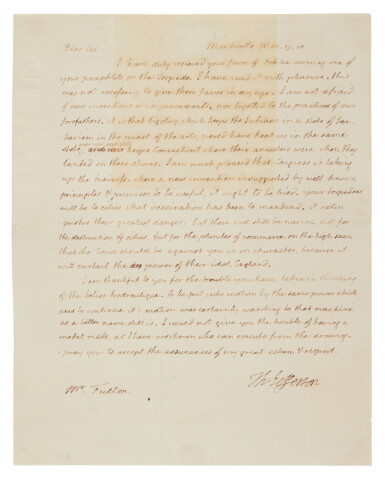 Dear Sir Monticello Mar. 17. 10.
I have duly received your favor of Feb. 24 covering one of
your pamphlets on the Torpedo. I have read it with pleasure. this
was not necessary to give them favor in my eye. I am not afraid
of new inventions or improvements, nor bigoted to the practices of our
forefathers. it is that bigotry which keeps the Indians in a state of bar-
barism in the midst of the arts, would have kept us in the same
state even now and still keeps Connecticut where their ancestors were when they
landed on these shores. I am much pleased that Congress is taking
up the business. where a new invention is supported by well known
principles & promises to be useful, it ought to be tried. your torpedoes
will be to cities what vaccination has been to mankind. it extin-
guishes their greatest danger. but there will still be navies, not for
the destruction of cities, but for the plunder of commerce on the high seas.
that the Tories should be against you is in character, because it
will curtail the power of their idol, England.
I am thankful to you for the trouble you have taken in thinking
of the belier hydraulique. to be put into motion by the same power which
was to continue it's motion was certainly wanting to that machine
as a better name still is. I would not give you the trouble of having a
model made, as I have workmen who can execute from the drawing.
I pray you to accept the assurances of my great esteem & respect.
Th: Jefferson
Mr. Fulton.